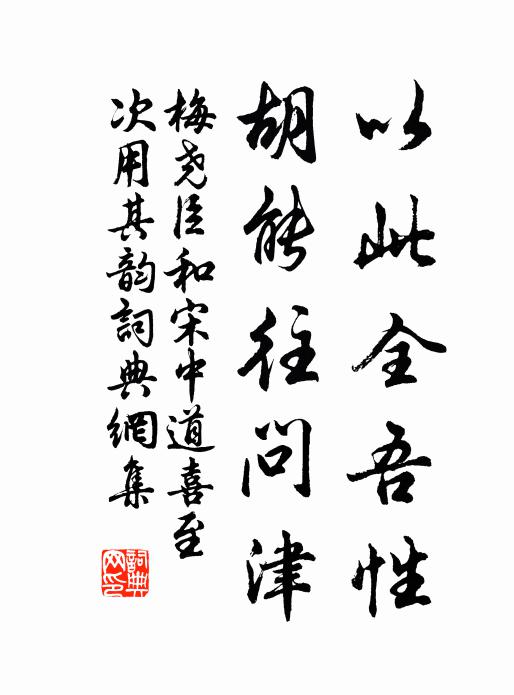 以此全吾性
胡能往问津
梅尧臣和宋中道喜至
次用其韵詞典網集
詞典網印